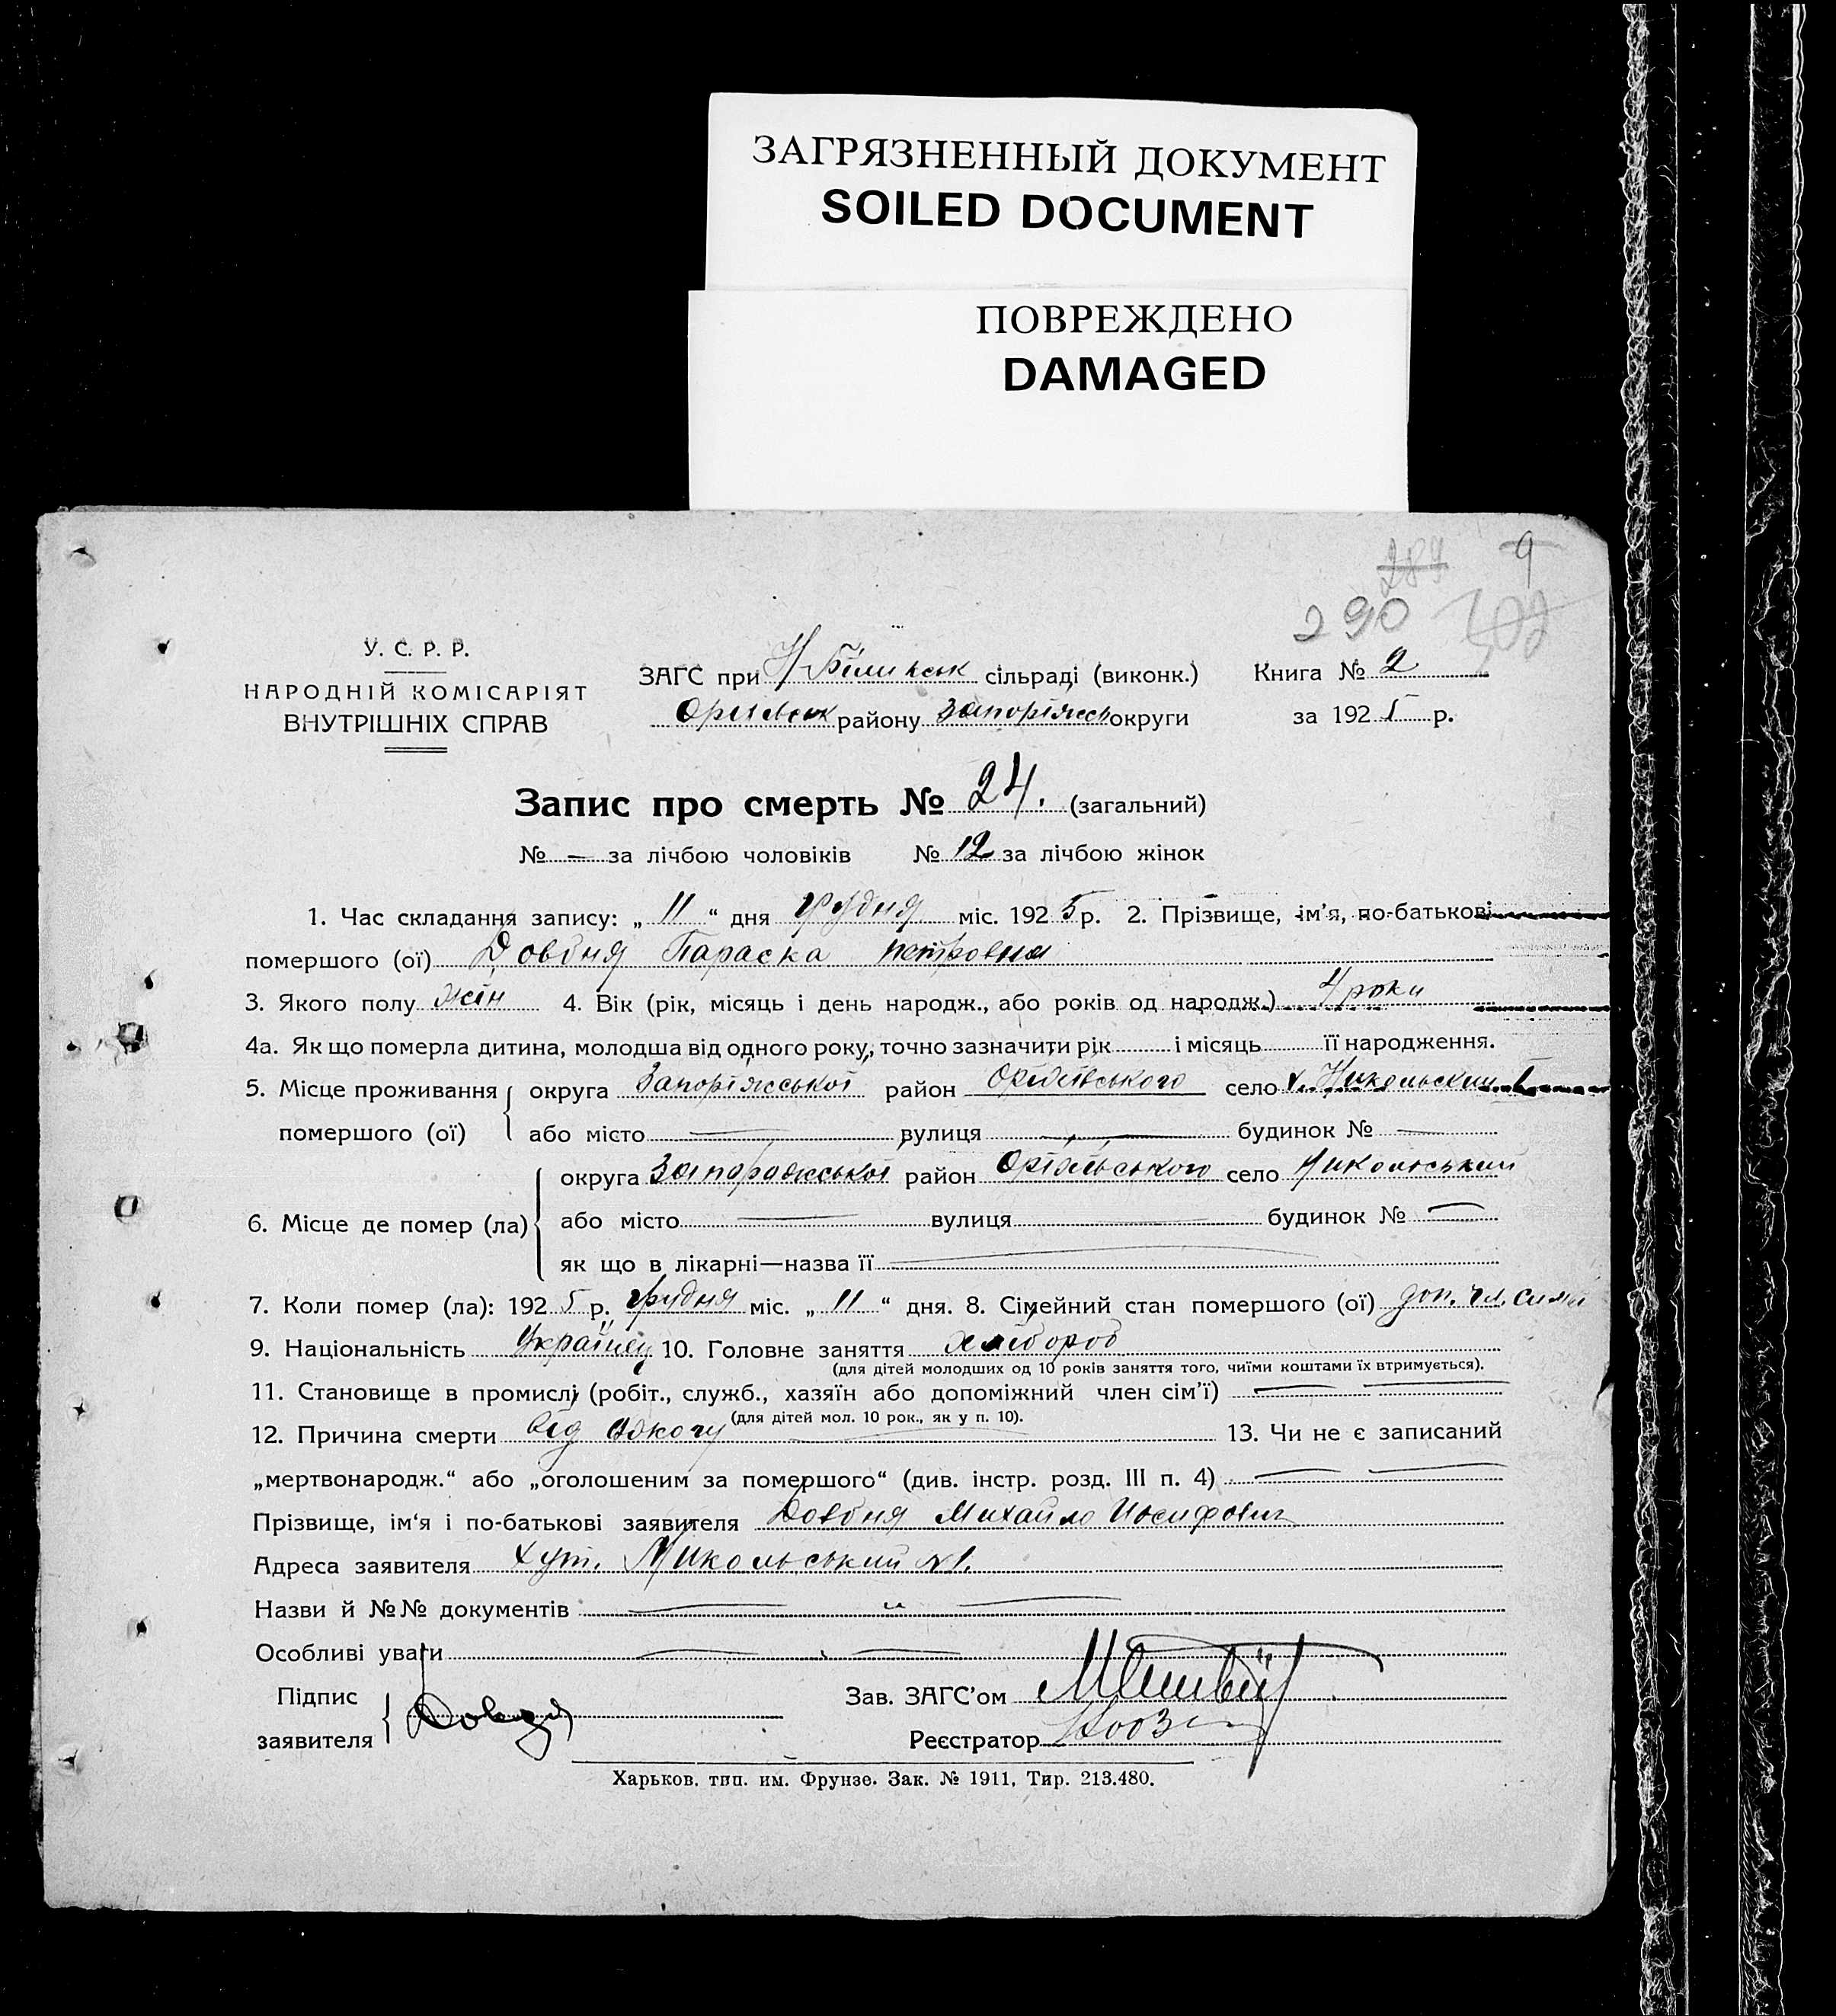 ЗАГРЯЗНЕННЫЙ ДОКУМЕНТ
SOILED DOCUMENT
ПОВРЕЖДЕНО
DAMAGED
289 9
290
У. С. Р. Р.
НАРОДНІЙ КОМІСАРІЯТ
ВНУТРІШНІХ СПРАВ
ЗАГС при сільраді (виконк.) Книга № 2
району Запоріжськ округи за 1925 р.
Запис про смерть № 24. (загальний)
№ — за лічбою чоловіків № 12 за лічбою жінок
1. Час складання запису: „ 11 “ дня грудня міс. 1925 р. 2. Прізвище, ім’я, по-батькові
помершого (ої) Довбня Параска петровна
3. Якого полу жін 4. Вік (рік, місяць і день народж., або років од народж.) 4 роки
4а. Як що померла дитина, молодша від одного року, точно зазначити рік і місяць її народження.
5. Місце проживання помершого (ої) округа Запоріжської район село х. Никольский 1
або місто — вулиця — будинок № —
6. Місце де помер (ла) округа Запорожської район село Микольський
або місто — вулиця — будинок № —
як що в лікарні—назва її —
7. Коли помер (ла): 1925 р. грудня міс. „ 11 “ дня. 8. Сімейний стан помершого (ої) доп. чл. сим'ї
9. Національність Українец 10. Головне заняття хлібороб
(для дітей молодших од 10 років заняття того, чиїми коштами їх втримується).
11. Становище в промислі (робіт., служб., хазяїн або допоміжний член сім’ї) — —
(для дітей мол. 10 рок., як у п. 10).
12. Причина смерти від — 13. Чи не є записаний
„мертвонародж.“ або „оголошеним за помершого“ (див. інстр. розд. III п. 4) — —
Прізвище, ім‘я і по-батькові заявителя Довбня Михайло Иосифович
Адреса заявителя хут. Микольський №1.
Назви й №№ документів — „ —
Особливі уваги — —
Підпис заявителя Довбня
Зав. ЗАГС’ом
Реєстратор
Харьков, тип. им. Фрунзе. Зак. № 1911, Тир. 213.480.